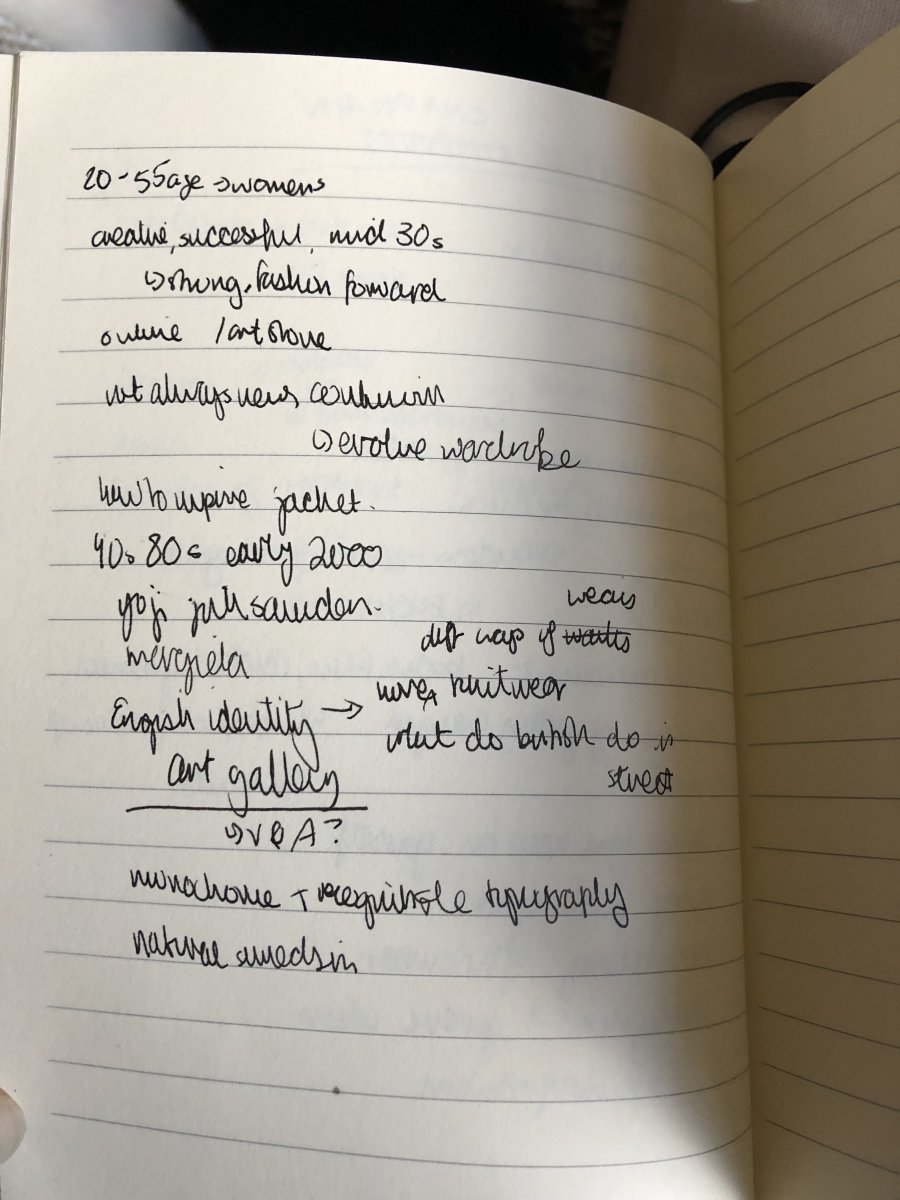 20-55 age → womens
creative, successful, mid 30s
↳ strong, fashion forward
online / art store
not always new,
↳ evolve wardrobe
how to inspire jacket.
40s 80s early 2000
yoji jil sander.
mergiela
wears
diff ways of
English identity → knitwear
what do british do in
street
art gallery
↳ V&A?
monochrome + recognisable typography
natural